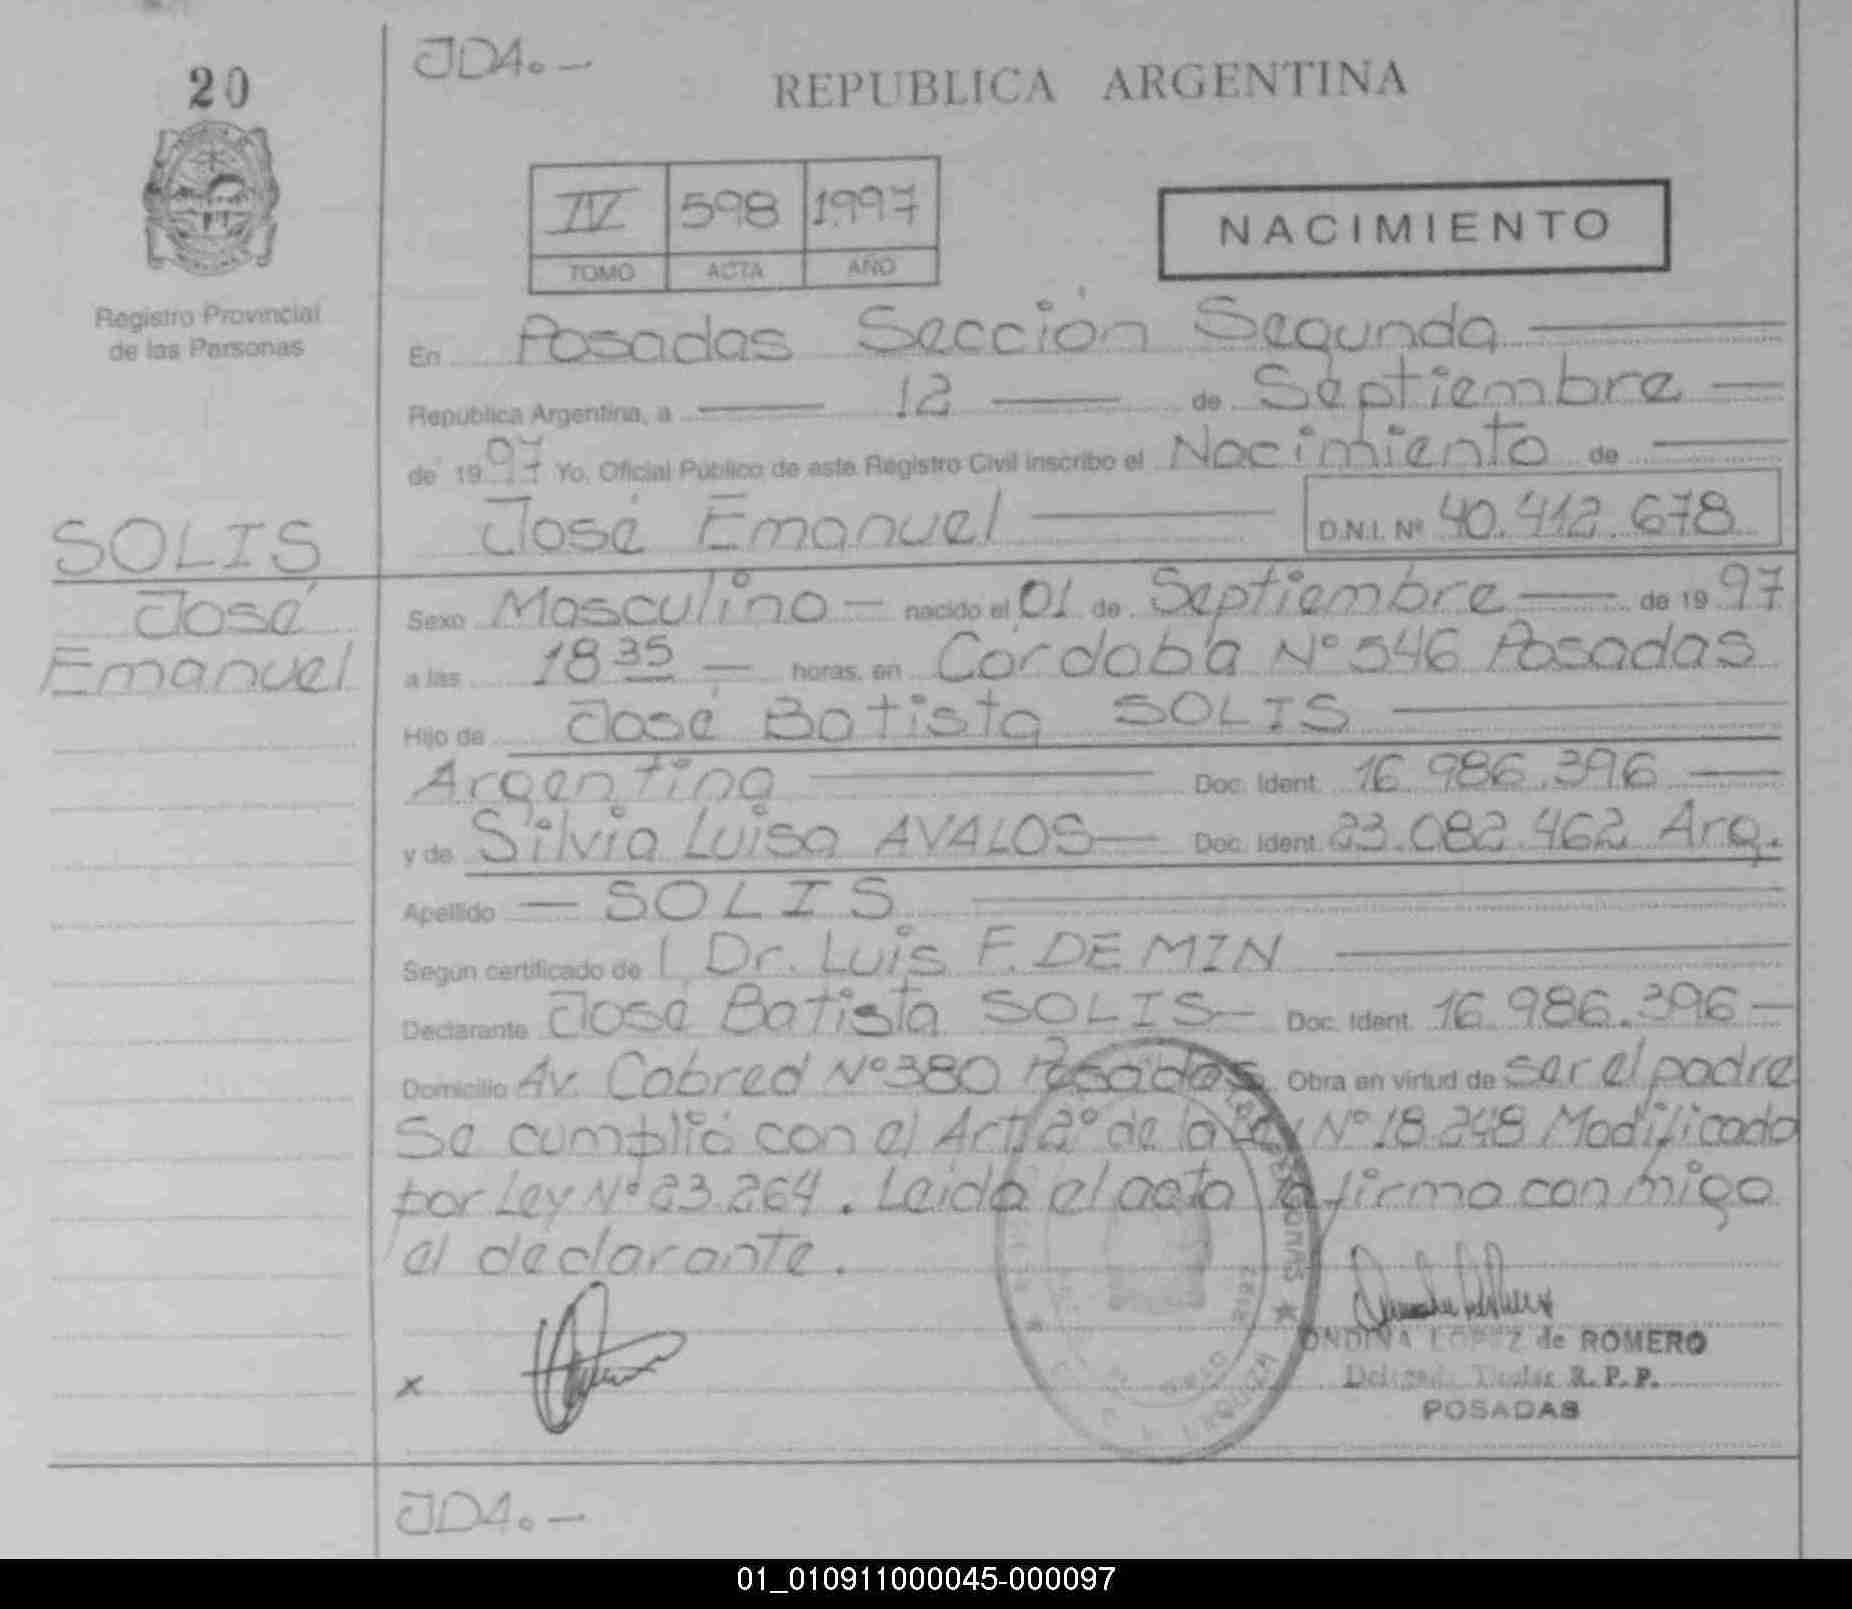 20
JDA.-
REPUBLICA ARGENTINA
IV 598 1997
TOMO ACTA AÑO
NACIMIENTO
Registro Provincial
de las Personas
En Posadas Sección Segunda
Republica Argentina, a 12 de Septiembre
de 1997 Yo, Oficial Público de este Registro Civil inscribo el Nacimiento de
José Emanuel D.N.I. Nº 40.412.678
SOLIS
José
Emanuel
Sexo Masculino nacido el 01 de Septiembre de 1997
a las 18 35 horas, en Córdoba Nº 546 Posadas
Hijo de José Batista SOLIS
Argentino Doc. Ident. 16.986.396
y de Silvia Luisa AVALOS Doc. Ident. 23.082.462 Arg.
Apellido SOLIS
Según certificado de Dr. Luis F. DE MIN
Declarante José Batista SOLIS Doc. Ident. 16.986.396
Domicilio Av. Cabred Nº 380 Posadas Obra en virtud de ser el padre
Se cumplió con el Art. 2º de la Ley Nº 18.248 Modificado
por Ley Nº 23.264. Leída el acta la firma conmigo
el declarante.
x
ONDINA LOPEZ de ROMERO
Delegada Titular R. P. P.
POSADAS
JDA.-
01_010911000045-000097